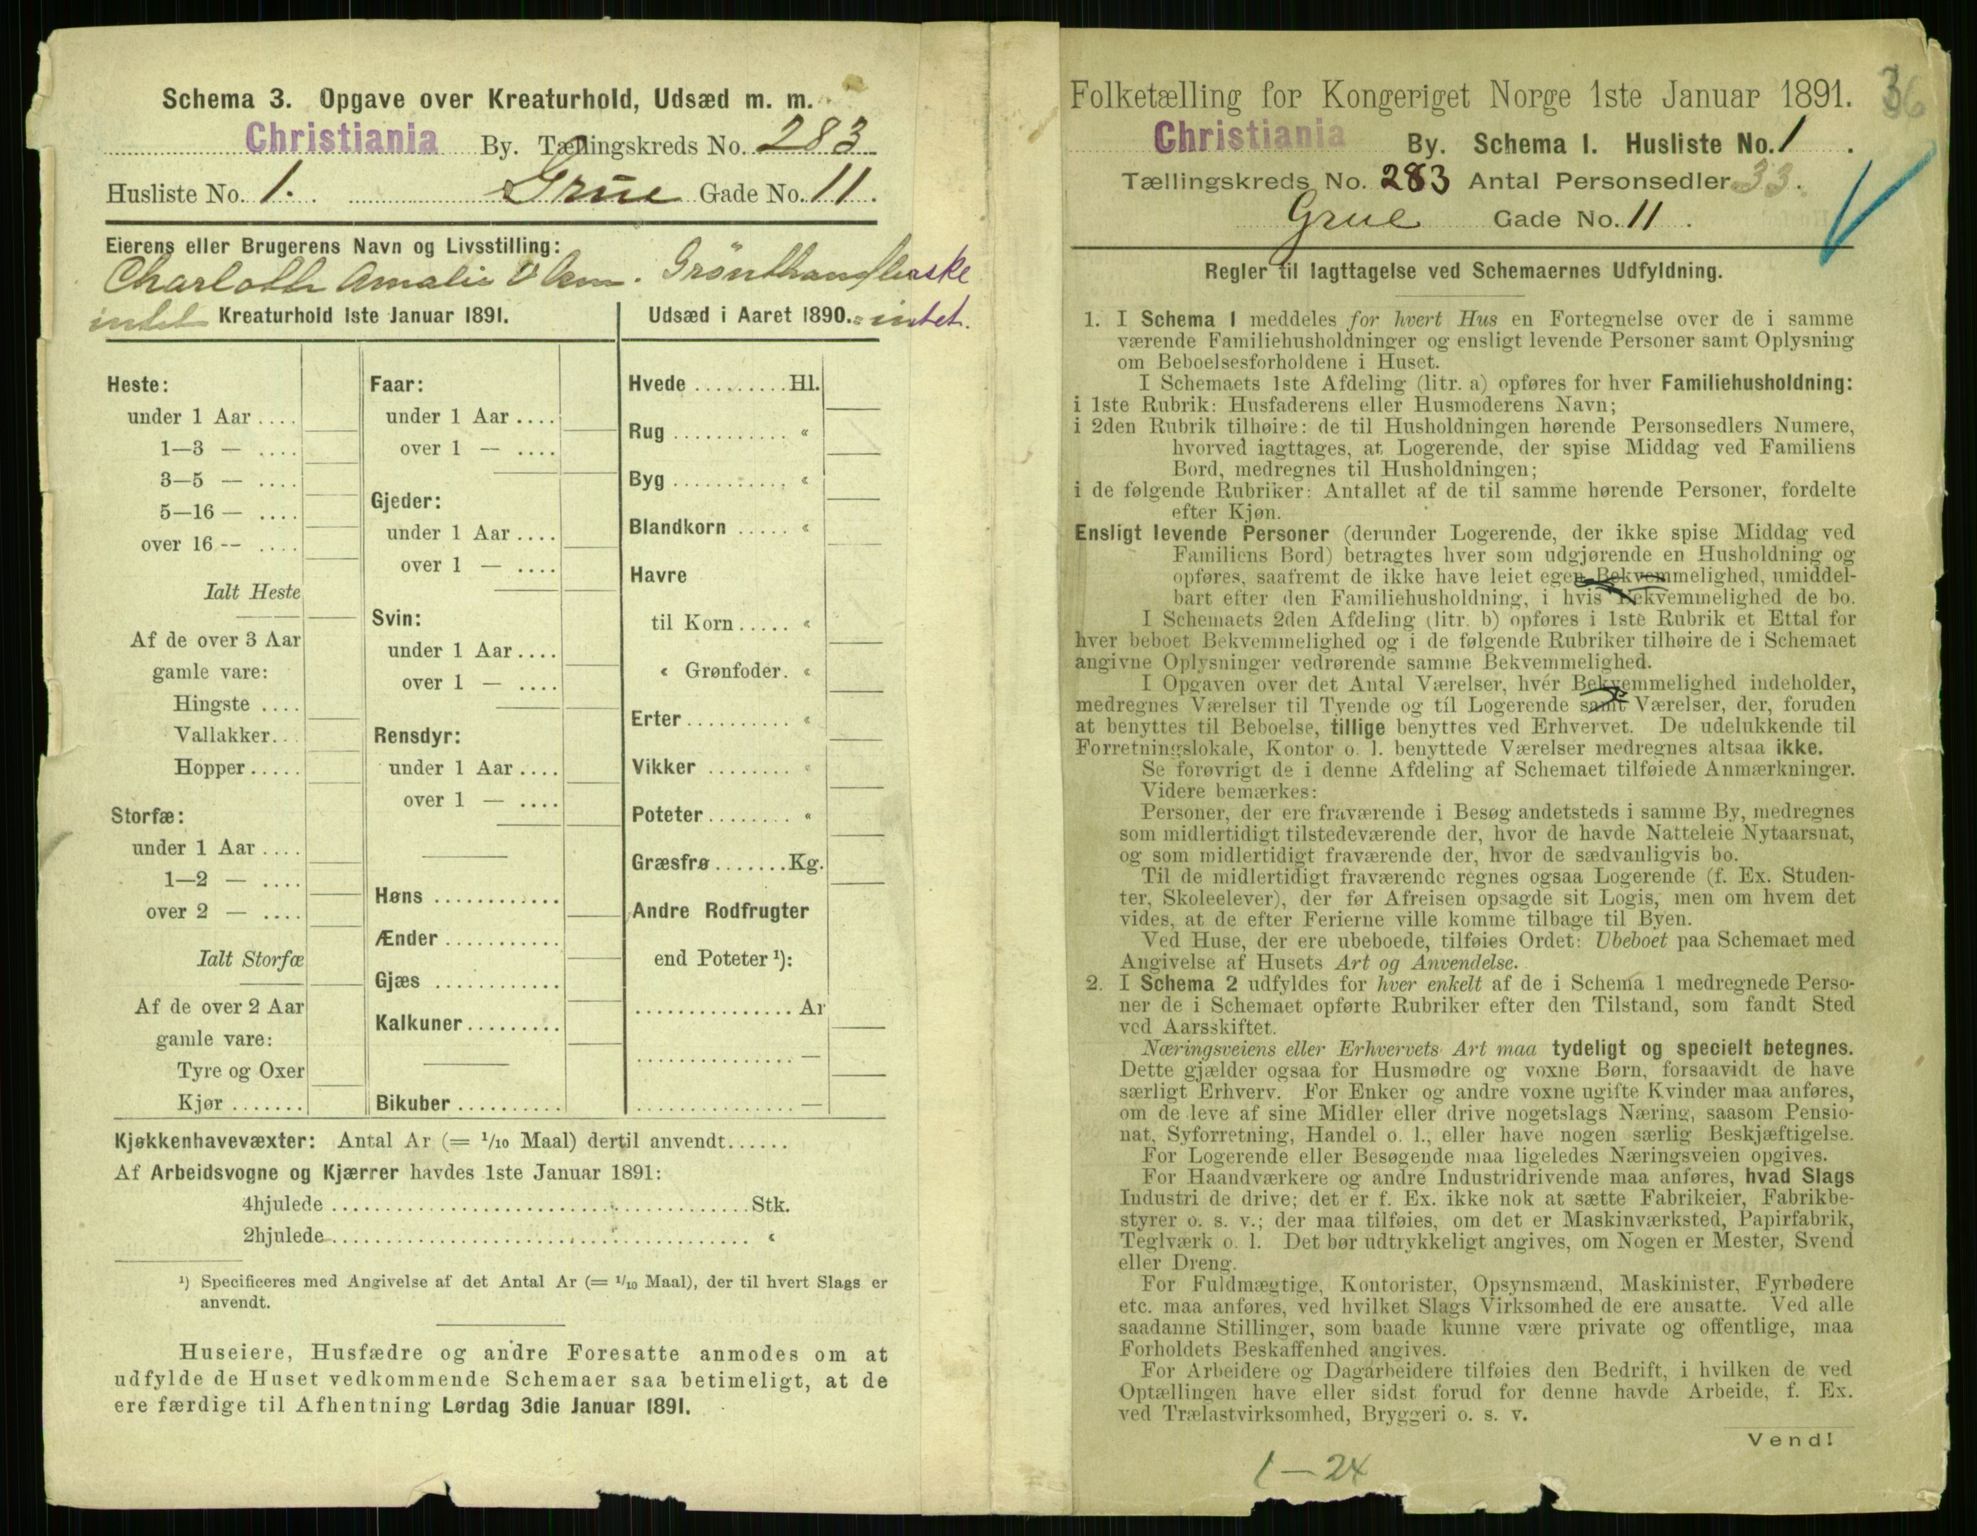 Schema 3. Opgave over Kreaturhold, Udsæd m. m.
Christiania By. Tællingskreds No. 283
Husliste No. 1. Grue Gade No. 11.
Eierens eller Brugerens Navn og Livsstilling:
Charlotte Amalie Olsen. Grönthandlerske
intet Kreaturhold 1ste Januar 1891. Udsæd i Aaret 1890. = intet.
Heste:
under 1 Aar ....
1—3 — ....
3—5 — ....
5—16 — ....
over 16 -- ....
Ialt Heste
Af de over 3 Aar
gamle vare:
Hingste ....
Vallakker..
Hopper .....
Storfæ:
under 1 Aar ....
1—2 — ....
over 2 — ....
Ialt Storfæ
Af de over 2 Aar
gamle vare:
Tyre og Oxer
Kjør .......
Faar:
under 1 Aar ....
over 1 — ....
Gjeder:
under 1 Aar ....
over 1 — ....
Svin:
under 1 Aar ....
over 1 — ....
Rensdyr:
under 1 Aar ....
over 1 — ....
Høns ............
Ænder ...........
Gjæs ............
Kalkuner.........
Bikuber ..........
Hvede .........Hl.
Rug ........... "
Byg ........... "
Blandkorn ..... "
Havre
til Korn ..... "
" Grønfoder. "
Erter.......... "
Vikker ........ "
Poteter........ "
Græsfrø.......Kg.
Andre Rodfrugter
end Poteter ¹):
...............Ar
............... —
............... —
Kjøkkenhavevæxter: Antal Ar (= 1/10 Maal) dertil anvendt......
Af Arbeidsvogne og Kjærrer havdes 1ste Januar 1891:
4hjulede ........................................Stk.
2hjulede........................................ "
¹) Specificeres med Angivelse af det Antal Ar (= 1/10 Maal), der til hvert Slags er
anvendt.
Huseiere, Husfædre og andre Foresatte anmodes om at
udfylde de Huset vedkommende Schemaer saa betimeligt, at de
ere færdige til Afhentning Lørdag 3die Januar 1891.
Folketælling for Kongeriget Norge 1ste Januar 1891. 36
Christiania By. Schema 1. Husliste No. 1.
Tællingskreds No. 283 Antal Personsedler 33.
Grue Gade No. 11.
Regler til Iagttagelse ved Schemaernes Udfyldning.
1. I Schema 1 meddeles for hvert Hus en Fortegnelse over de i samme
værende Familiehusholdninger og ensligt levende Personer samt Oplysning
om Beboelsesforholdene i Huset.
I Schemaets 1ste Afdeling (litr. a) opføres for hver Familiehusholdning:
i 1ste Rubrik: Husfaderens eller Husmoderens Navn;
i 2den Rubrik tilhøire: de til Husholdningen hørende Personsedlers Numere,
hvorved iagttages, at Logerende, der spise Middag ved Familiens
Bord, medregnes til Husholdningen;
i de følgende Rubriker: Antallet af de til samme hørende Personer, fordelte
efter Kjøn.
Ensligt levende Personer (derunder Logerende, der ikke spise Middag ved
Familiens Bord) betragtes hver som udgjørende en Husholdning og
opføres, saafremt de ikke have leiet egen Bekvemmelighed, umiddel-
bart efter den Familiehusholdning, i hvis Bekvemmelighed de bo.
I Schemaets 2den Afdeling (litr. b) opføres i 1ste Rubrik et Ettal for
hver beboet Bekvemmelighed og i de følgende Rubriker tilhøire de i Schemaet
angivne Oplysninger vedrørende samme Bekvemmelighed.
I Opgaven over det Antal Værelser, hvér Bekvemmelighed indeholder,
medregnes Værelser til Tyende og til Logerende samt Værelser, der, foruden
at benyttes til Beboelse, tillige benyttes ved Erhvervet. De udelukkende til
Forretningslokale, Kontor o. l. benyttede Værelser medregnes altsaa ikke.
Se forøvrigt de i denne Afdeling af Schemaet tilføiede Anmærkninger.
Videre bemærkes:
Personer, der ere fraværende i Besøg andetsteds i samme By, medregnes
som midlertidigt tilstedeværende der, hvor de havde Natteleie Nytaarsnat,
og som midlertidigt fraværende der, hvor de sædvanligvis bo.
Til de midlertidigt fraværende regnes ogsaa Logerende (f. Ex. Studen-
ter, Skoleelever), der før Afreisen opsagde sit Logis, men om hvem det
vides, at de efter Ferierne ville komme tilbage til Byen.
Ved Huse, der ere ubeboede, tilføies Ordet: Ubeboet paa Schemaet med
Angivelse af Husets Art og Anvendelse.
2. I Schema 2 udfyldes for hver enkelt af de i Schema 1 medregnede Perso-
ner de i Schemaet opførte Rubriker efter den Tilstand, som fandt Sted
ved Aarsskiftet.
Næringsveiens eller Erhvervets Art maa tydeligt og specielt betegnes.
Dette gjælder ogsaa for Husmødre og voxne Børn, forsaavidt de have
særligt Erhverv. For Enker og andre voxne ugifte Kvinder maa anføres,
om de leve af sine Midler eller drive nogetslags Næring, saasom Pensio-
nat, Syforretning, Handel o. l., eller have nogen særlig Beskjæftigelse.
For Logerende eller Besøgende maa ligeledes Næringsveien opgives.
For Haandværkere og andre Industridrivende maa anføres, hvad Slags
Industri de drive; det er f. Ex. ikke nok at sætte Fabrikeier, Fabrikbe-
styrer o. s. v.; der maa tilføies, om det er Maskinværksted, Papirfabrik,
Teglværk o. l. Det bør udtrykkeligt angives, om Nogen er Mester, Svend
eller Dreng.
For Fuldmægtige, Kontorister, Opsynsmænd, Maskinister, Fyrbødere
etc. maa anføres, ved hvilket Slags Virksomhed de ere ansatte. Ved alle
saadanne Stillinger, som baade kunne være private og offentlige, maa
Forholdets Beskaffenhed angives.
For Arbeidere og Dagarbeidere tilføies den Bedrift, i hvilken de ved
Optællingen have eller sidst forud for denne havde Arbeide, f. Ex.
ved Trælastvirksomhed, Bryggeri o. s. v.
Vend!
1—24